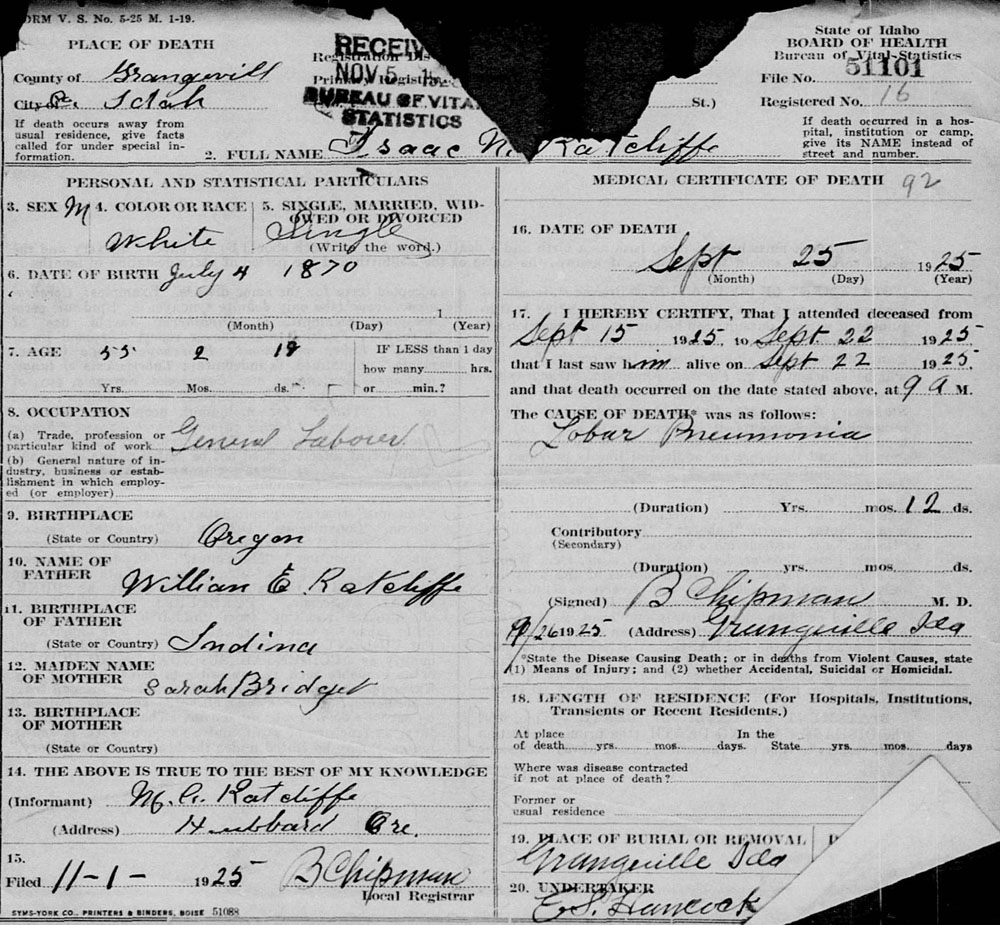 FORM V. S. No. 5-25 M. 1-19.
PLACE OF DEATH
County of Grangevill
City of Idah
If death occurs away from
usual residence, give facts
called for under special in-
formation.
RECEIV
Registration Dis
NOV 5
Primary Registr
BUREAU OF VITA
STATISTICS
State of Idaho
BOARD OF HEALTH
Bureau of Vital Statistics
File No. 51101
St.) Registered No. 16
If death occurred in a hos-
pital, institution or camp,
give its NAME instead of
street and number.
2. FULL NAME Isaac N. Ratcliffe
PERSONAL AND STATISTICAL PARTICULARS
3. SEX M 4. COLOR OR RACE White
5. SINGLE, MARRIED, WID-
OWED OR DIVORCED
Single
(Write the word.)
6. DATE OF BIRTH July 4 1870
1
(Month) (Day) (Year)
7. AGE 55 2 18
Yrs. Mos. ds.
IF LESS than 1 day
how many hrs.
or min.?
8. OCCUPATION
(a) Trade, profession or
particular kind of work General Laborer
(b) General nature of in-
dustry, business or estab-
lishment in which employ-
ed (or employer)
9. BIRTHPLACE
(State or Country) Oregon
10. NAME OF
FATHER William E Ratcliffe
11. BIRTHPLACE
OF FATHER
(State or Country) Indina
12. MAIDEN NAME
OF MOTHER Sarah Bridget
13. BIRTHPLACE
OF MOTHER
(State or Country)
14. THE ABOVE IS TRUE TO THE BEST OF MY KNOWLEDGE
(Informant) Ratcliffe
(Address) Hubbard Ore.
15.
Filed 11-1- 1925 B Chipman
Local Registrar
SYMS-YORK CO., PRINTERS & BINDERS, BOISE 51088
MEDICAL CERTIFICATE OF DEATH 92
16. DATE OF DEATH
Sept 25 1925
(Month) (Day) (Year)
17. I HEREBY CERTIFY, That I attended deceased from
Sept 15 1925, to Sept 22 1925
that I last saw him alive on Sept 22 1925.
and that death occurred on the date stated above, at 9 A M.
The CAUSE OF DEATH* was as follows:
Lobar Pneumonia
(Duration) Yrs. mos. 12 ds.
Contributory
(Secondary)
(Duration) yrs. mos. ds.
(Signed) B Chipman M. D.
9/26 1925 (Address) Grangeville Ida
*State the Disease Causing Death; or in deaths from Violent Causes, state
(1) Means of Injury; and (2) whether Accidental, Suicidal or Homicidal.
18. LENGTH OF RESIDENCE (For Hospitals, Institutions,
Transients or Recent Residents.)
At place In the
of death yrs. mos. days. State yrs. mos. days
Where was disease contracted
if not at place of death?
Former or
usual residence
19. PLACE OF BURIAL OR REMOVAL
Grangeville Ida
20. UNDERTAKER
E S. Hancock